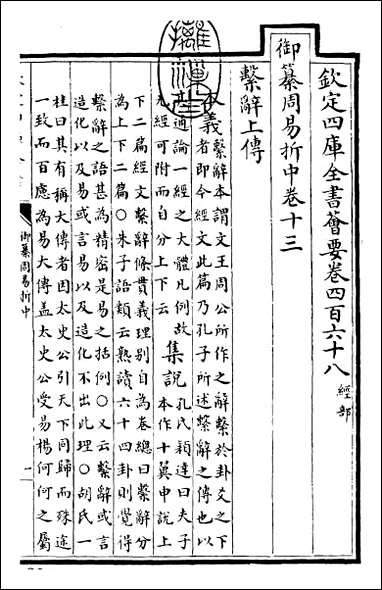 欽定四庫全書薈要卷四百六十八 經部
御纂周易折中卷十三
繫辭上傳
本義 繫辭本謂文王周公所作之辭繫於卦爻之下
者即今經文此篇乃孔子所述繫辭之傳也以
其通論一經之大體凡例故
无經可附而自分上下云
集說 孔氏穎達曰夫子
本作十翼申說上
下二篇經文繫辭條貫義理别自為卷總曰繫辭分
為上下二篇〇朱子語類云熟讀六十四卦則覺得
繫辭之語甚為精密是易之括例〇又云繫辭或言
造化以及易或言易以及造化不出此理〇胡氏一
桂曰其有稱大傳者因太史公引天下同歸而殊途
一致而百慮為易大傳蓋太史公受易楊何何之屬
御纂周易折中
一